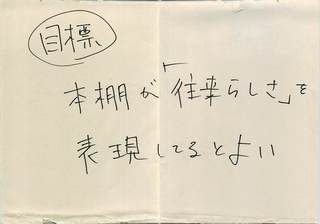 目標
本棚が「往来らしさ」を
表現してるとよい